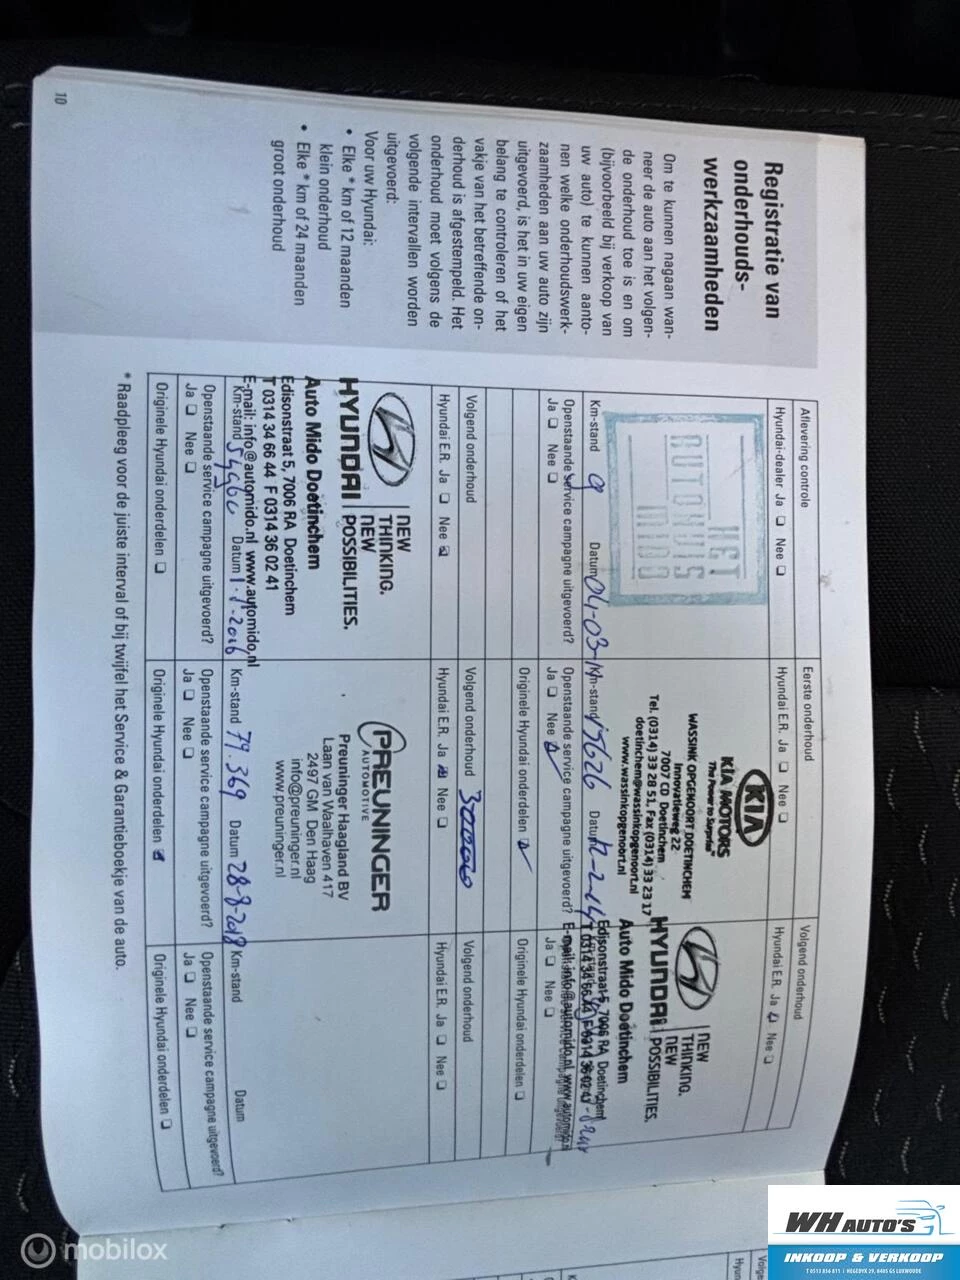 Registratie van
onderhouds-
werkzaamheden
Om te kunnen nagaan wan-
neer de auto aan het volgen-
de onderhoud toe is en om
(bijvoorbeeld bij verkoop van
uw auto) te kunnen aanto-
nen welke onderhoudswerk-
zaamheden aan uw auto zijn
uitgevoerd, is het in uw eigen
belang te controleren of het
vakje van het betreffende on-
derhoud is afgestempeld. Het
onderhoud moet volgens de
volgende intervallen worden
uitgevoerd:
Voor uw Hyundai:
• Elke * km of 12 maanden
klein onderhoud
• Elke * km of 24 maanden
groot onderhoud
10
Aflevering controle
Hyundai-dealer Ja Nee
HET
AUTOHUIS
MIDO
Km-stand 9 Datum 04-03-
Openstaande service campagne uitgevoerd?
Ja Nee
Eerste onderhoud
Hyundai E.R. Ja Nee
KIA
KIA MOTORS
The Power to Surprise™
WASSINK OPGENOORT DOETINCHEM
Innovatieweg 22
7007 CD Doetinchem
Tel. (0314) 33 28 51, Fax (0314) 33 23 17
doetinchem@wassinkopgenoort.nl
www.wassinkopgenoort.nl
Km-stand 15626 Datum 12-2-14
Openstaande service campagne uitgevoerd?
Ja Nee
Originele Hyundai onderdelen
Volgend onderhoud
Hyundai E.R. Ja Nee
HYUNDAI
NEW
THINKING.
NEW
POSSIBILITIES.
Auto Mido Doetinchem
Edisonstraat 5, 7006 RA Doetinchem
T 0314 34 66 44 F 0314 36 02 41
E-mail: info@automido.nl www.automido.nl
Ja Nee
Originele Hyundai onderdelen
Volgend onderhoud
Hyundai E.R. Ja Nee
HYUNDAI
NEW
THINKING.
NEW
POSSIBILITIES.
Auto Mido Doetinchem
Edisonstraat 5, 7006 RA Doetinchem
T 0314 34 66 44 F 0314 36 02 41
E-mail: info@automido.nl www.automido.nl
Km-stand Datum
Openstaande service campagne uitgevoerd?
Ja Nee
Originele Hyundai onderdelen
Volgend onderhoud 300000
Hyundai E.R. Ja Nee
PREUNINGER
AUTOMOTIVE
Preuninger Haagland BV
Laan van Waalhaven 417
2497 GM Den Haag
info@preuninger.nl
www.preuninger.nl
Km-stand 79.369 Datum 28-8-2018
Openstaande service campagne uitgevoerd?
Ja Nee
Originele Hyundai onderdelen
Volgend onderhoud
Hyundai E.R. Ja Nee
Km-stand Datum
Openstaande service campagne uitgevoerd?
Ja Nee
Originele Hyundai onderdelen
* Raadpleeg voor de juiste interval of bij twijfel het Service & Garantieboekje van de auto.
mobilox
WH AUTO'S
INKOOP & VERKOOP
T 0513 856 811 | HEGEDYK 29, 8405 GS LUXWOUDE